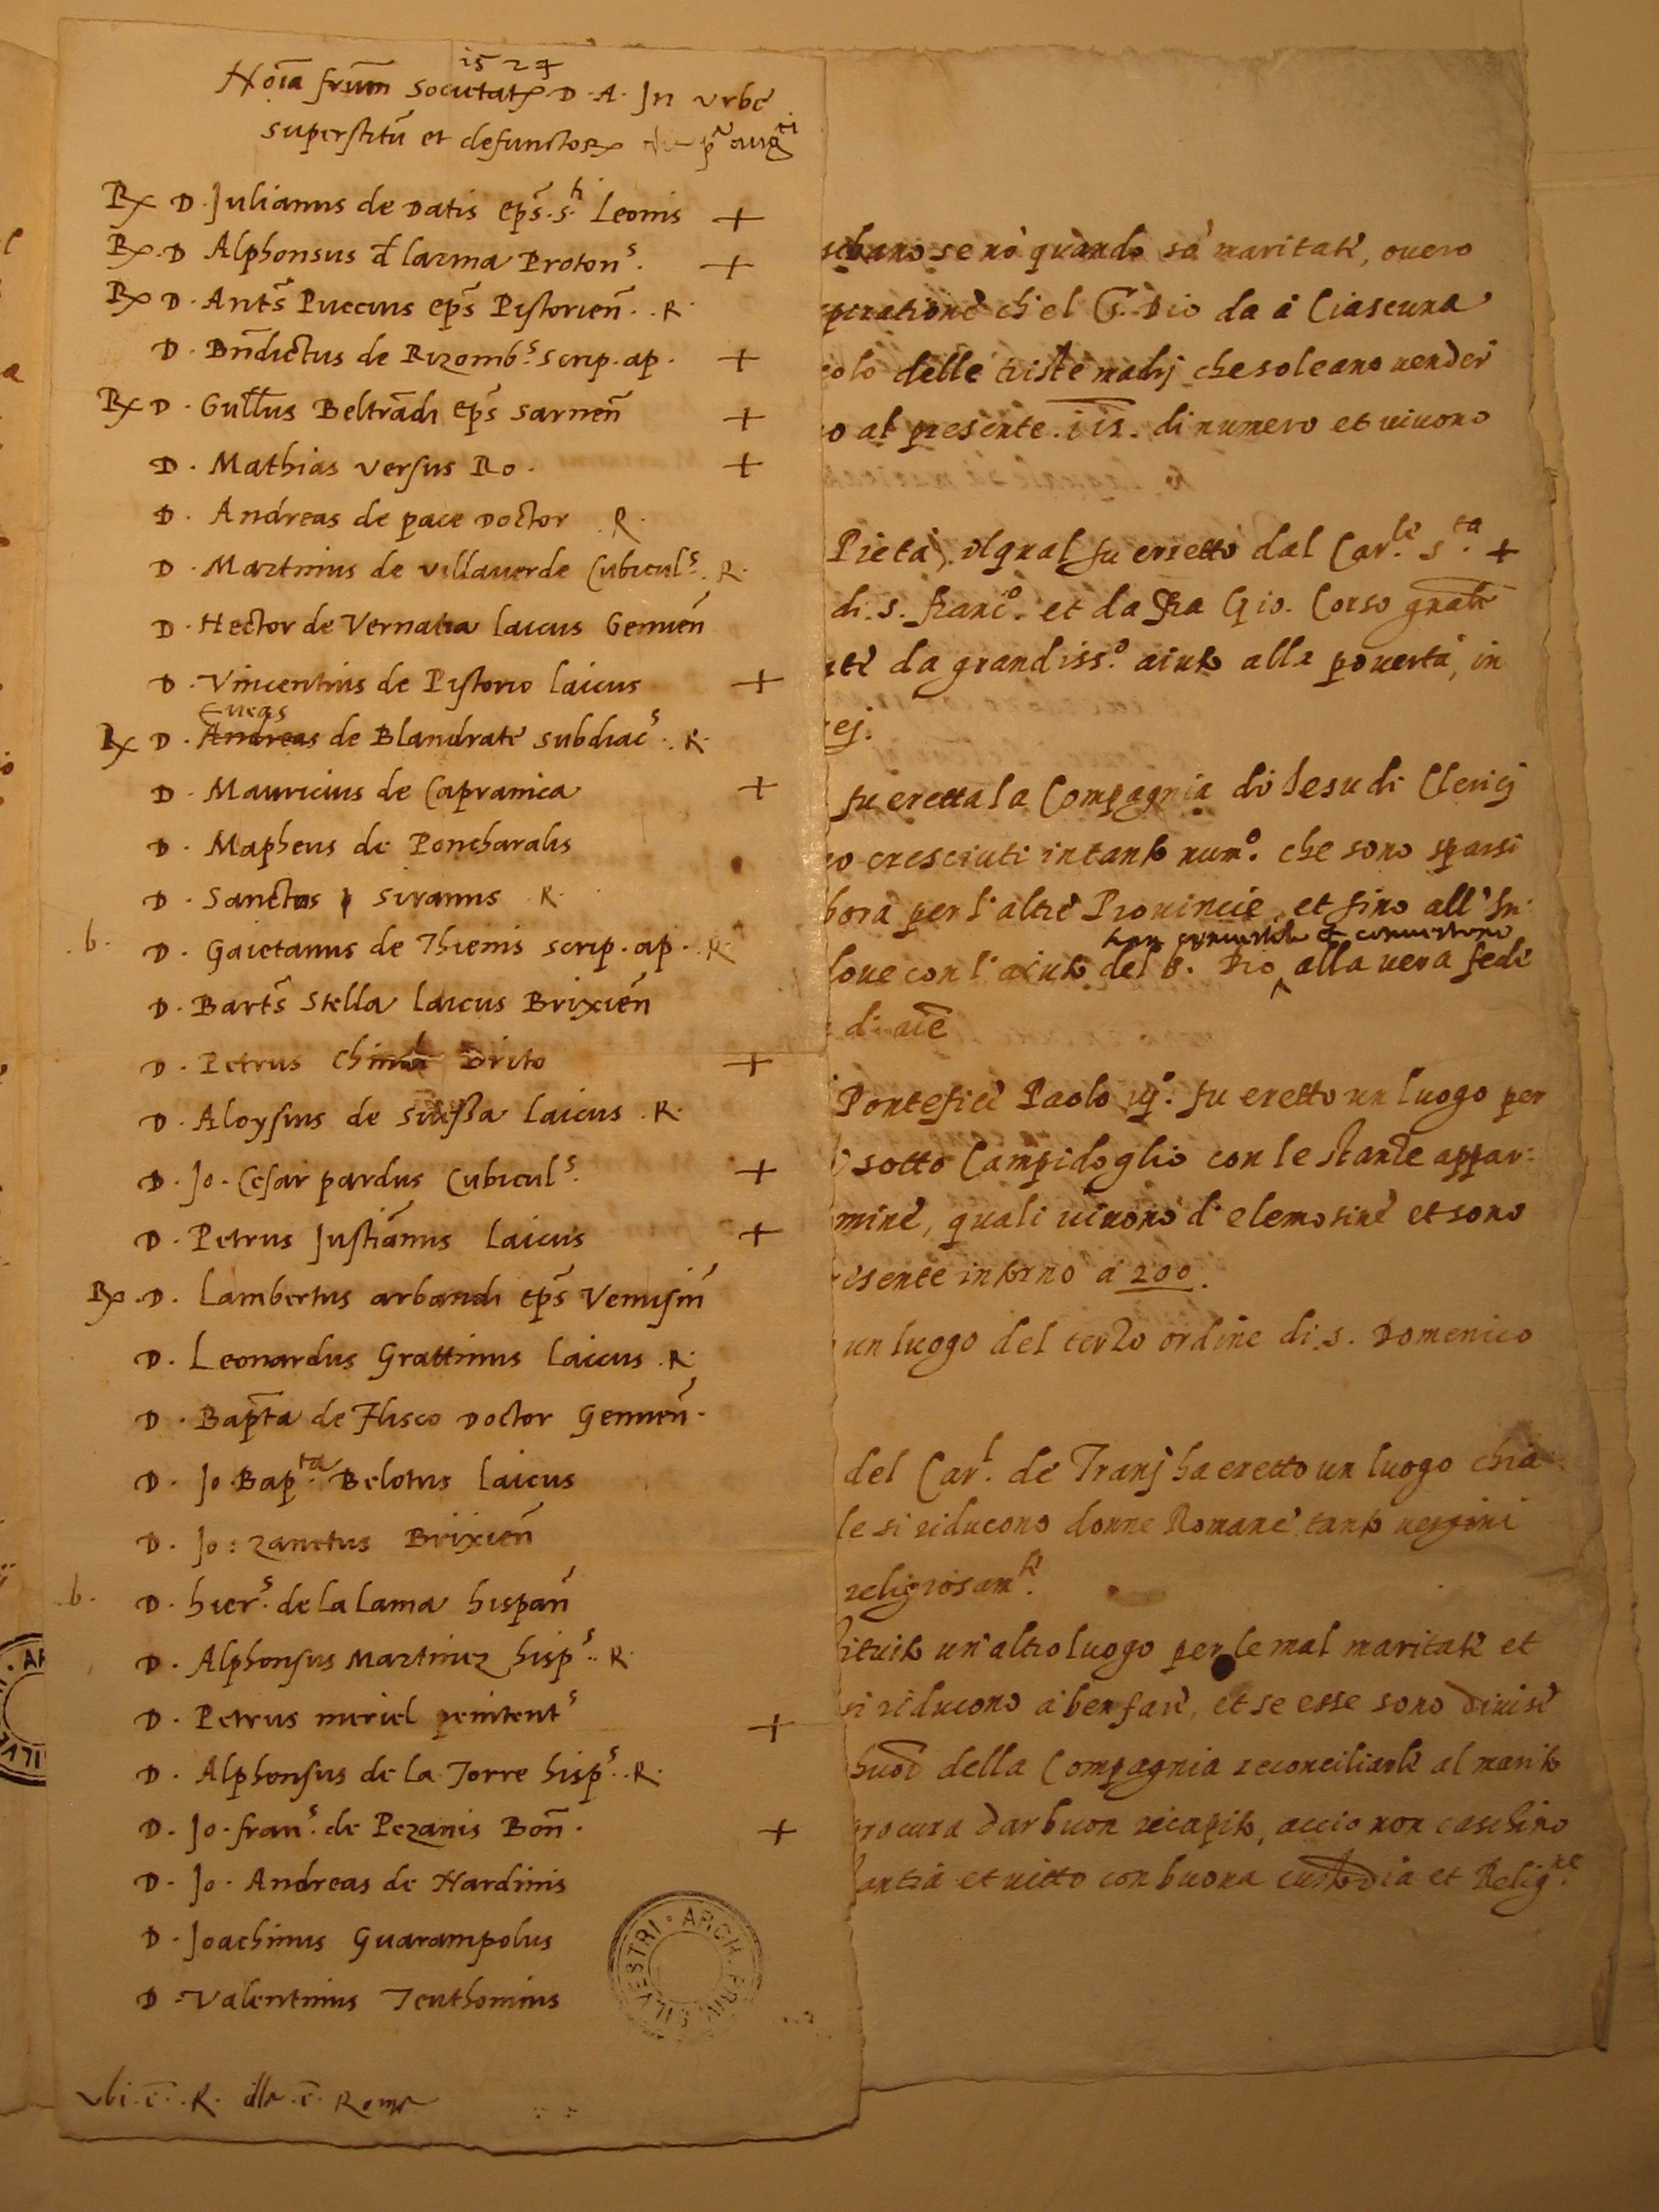 1524
Noīa frum̄ Societatꝭ D. A. In urbe
superstitū et defunctorꝝ pᵃ augᵗⁱ
Rx D. Julianus de Datis ep̄s. s.ᵗⁱ Leonis +
Rx. D Alphonsus d larma Protonˢ. +
Rx D. Ant̄s Puccius ep̄s Pistorien̄. R.
D. Bn̄dictus de Rizombˢ. scrip. ap. +
Rx D. Gull̄us Beltrādi ep̄s Sarnen̄ +
D. Mathias Versus Ro. +
D. Andreas de pace Doctor R.
D. Martinus de Villaverde Cubiculˢ. R.
D. Hector de Vernatia laicus Genuen̄
D. Vincentius de Pistorio laicus +
Eneas
Rx D. Andreas de Blandrate subdiacˢ. R.
D. Mauricius de Capranica +
D. Mapheus de Poncharalis
D. Sanctus Siranus R.
.b. D. Gaietanus de Thienis scrip. ap. R.
D. Bart̄s Stella laicus Brixien̄
D. Petrus Drito +
D. Aloysius de Suessa laicus R.
D. Jo. Cesar pardus Cubiculˢ. +
D. Petrus Justiānus laicus +
Rx. D. Lambertus arbandi ep̄s Venusin̄
D. Leonardus Grattinus laicus R.
D. Bap̄ta de Flisco Doctor Genuen̄.
D. Jo. Bapᵗᵃ. Belotus laicus
D. Jo: zanetus Brixien̄
.b. D. hierˢ. de la lama hispan̄
D. Alphonsus Martinez hispˢ. R.
D. Petrus muriel penitentˢ +
D. Alphonsus de la Torre hispˢ. R.
D. Jo. franˢ. de Pezanis Bon̄. +
D. Jo. Andreas de Nardinis
D. Joachinus Guarampolus
D. Valentinus Teuthonius
ubi. ē. R. ille. ē. Rome
SILVESTRI · ARCH.
se nō quando sā maritate, overo
peratione ch'el S. Dio da à Ciascuna
delle triste madrj che soleano vender
o al presente. 115. di numero et vivono
Pietà) il qual fu eretto dal Carˡᵉ. Sᵗᵃ. +
di. S. Francᵒ. et da Fra Gio. Corso
da grandissᵒ. aiuto alla povertà, in
ej.
fu eretta la Compagnia di Iesu di Clericj
o cresciuti in tanto numᵒ. che sono sparsi
hora per l'altre Provincie, et fino all' In:
et convertono
dove con l'aiuto del S. Dio alla vera fede
di aīe
Pontefice Paolo iijᵒ. fu eretto un luogo per
sotto Campidoglio con le stantie appar:
mine, quali vivono di elemosine et sono
esente intorno à 200.
un luogo del terzo ordine di. S. Domenico
del Carˡ. de Tranj ha eretto un luogo chia:
le si riducono donne Romane tanto vergini
religiosamᵗᵉ.
tituito un altro luogo per le mal maritate et
si riducono à ben fare, et se esse sono divise
della Compagnia reconciliarle al marito
procura dar buon ricapito, accio non caschino
et vitto con buona custodia et Religⁿᵉ.